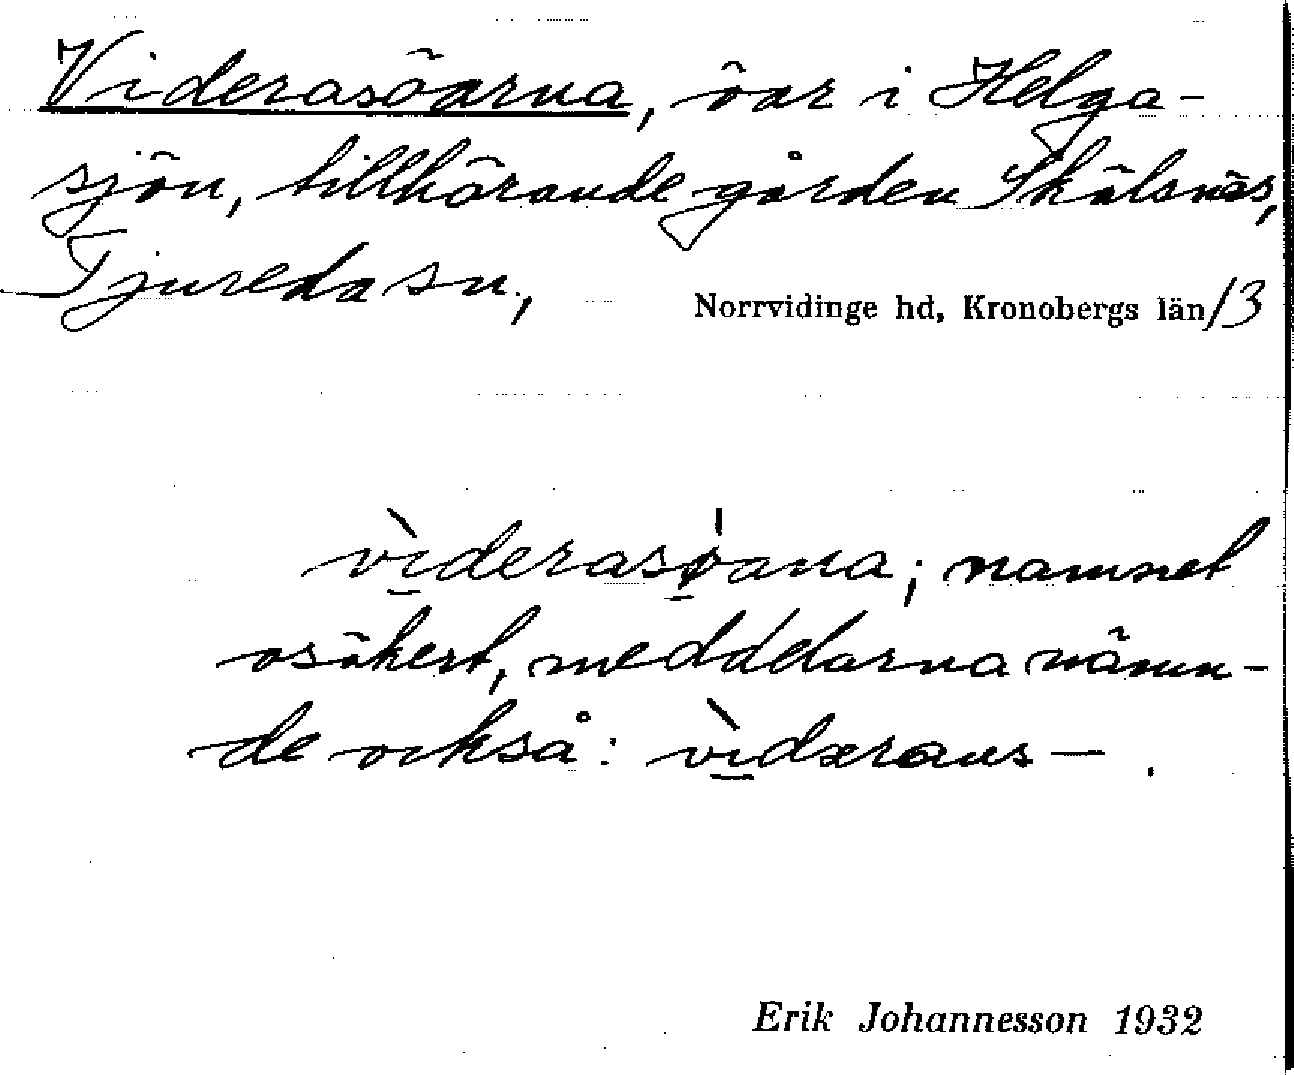 Viderasöarna, öar i Helga-
sjön, tillhörande gården Skälsnäs,
Tjureda sn,
Norrvidinge hd, Kronobergs län /3
vìderasøana; namnet
osäkert, meddelarna nämn-
de också: vìdæraus— .
Erik Johannesson 1932